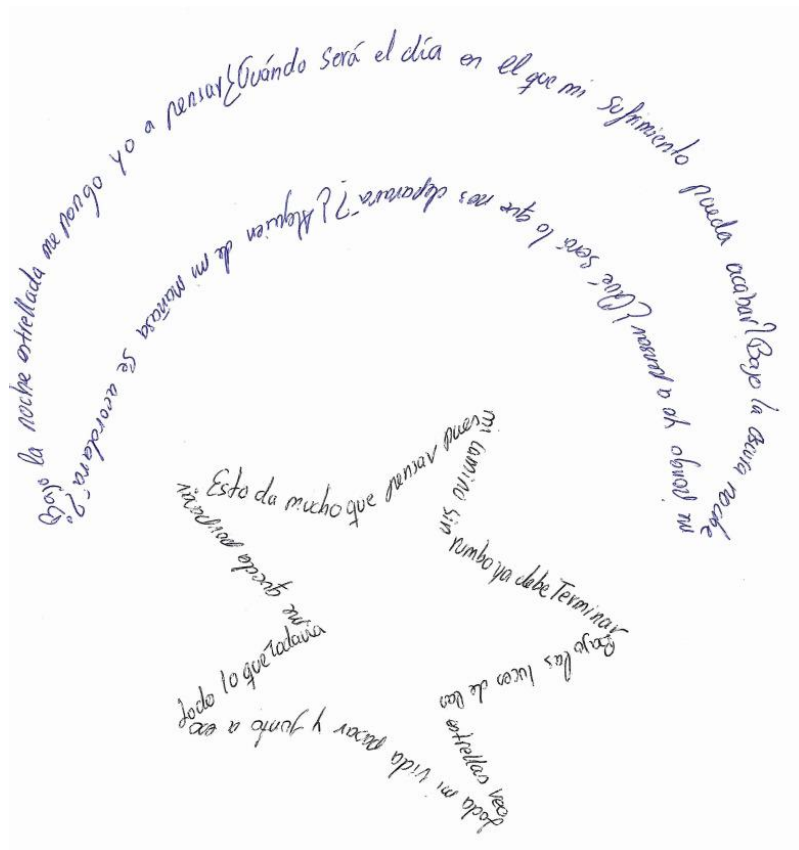 Bajo la noche estrellada me pongo yo a pensar ¿Cuándo será el día en el que mi sufrimiento pueda acabar? Bajo la oscura noche
mi pongo yo a pensar ¿Qué será lo que nos deparara? ¿Alguien de mi mañasa se acordara?
Esto da mucho que pensar pues
mi camino sin
rumbo ya debe Terminar
Bajo las luces de las
estrellas veo
toda mi vida pasar y junto a eso
todo lo que todavia
me queda por pasar.